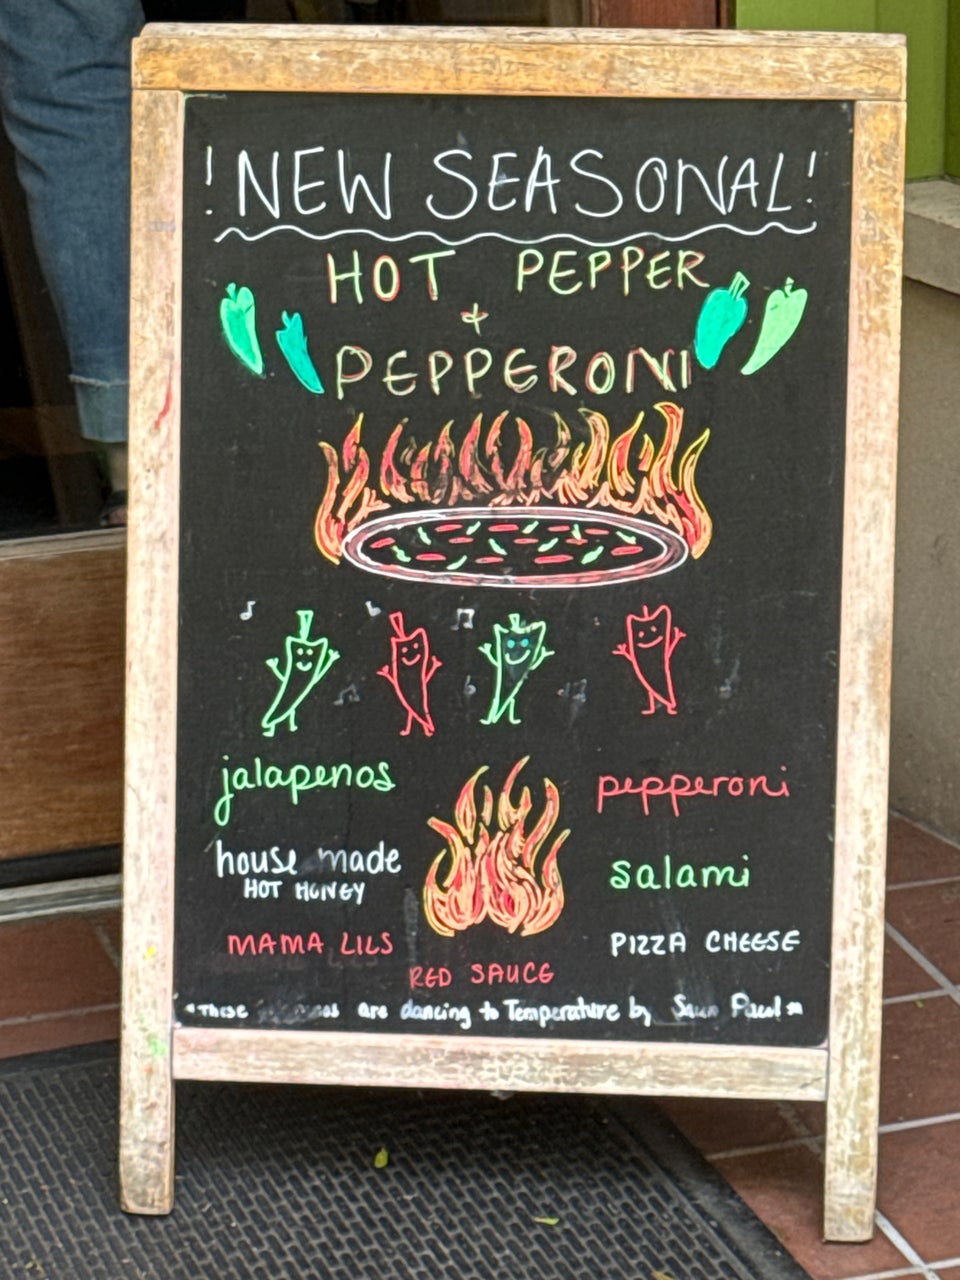 !NEW SEASONAL!
HOT PEPPER
+
PEPPERONI
jalapenos
pepperoni
house made
HOT HONEY
salami
MAMA LILS
PIZZA CHEESE
RED SAUCE
*These are dancing to Temperature by Sean Paul*